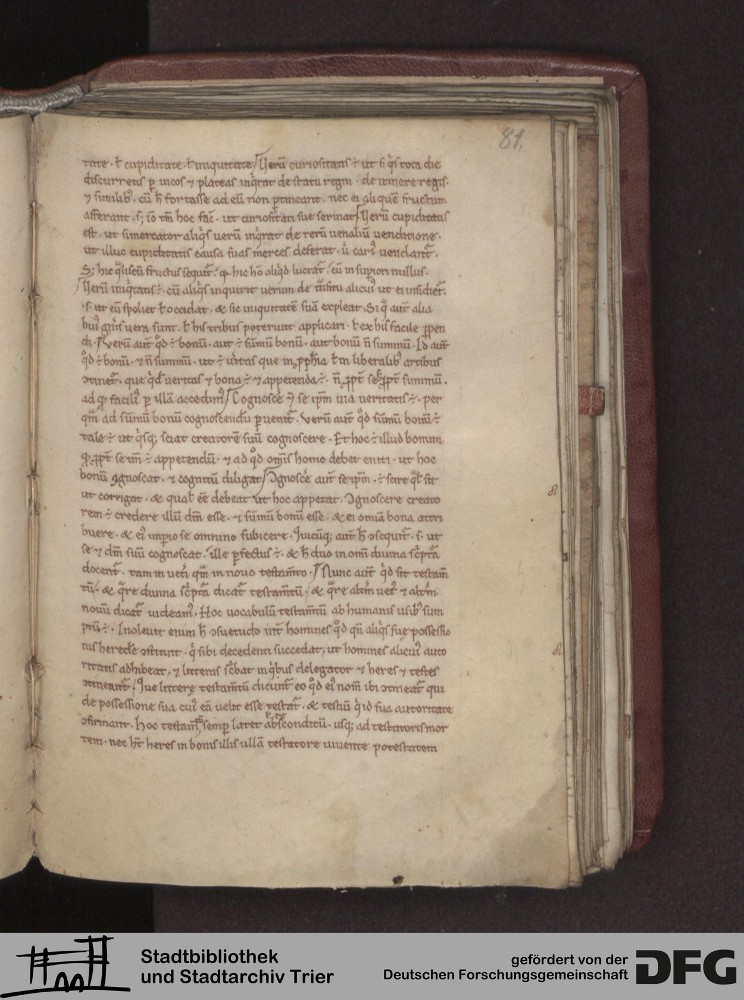 81.
tate · ł cupiditate · ł iniquitate / Verū curiositatis ÷ ut si q̇s tota die
discurrens p̱ uicos ⁊ plateas inq̇rat de statu regni · de itinere regis ·
⁊ similib; · cū h̄ fortasse ad eū non ptineant · nec ei aliquē fructum
afferant · s; iō tm̄ hoc fac̄ · ut curiositati sue seruiat / Verū cupiditatis
est · ut si mercator aliq̇s uerū inq̇rat de rerū uenaliū uenditione ·
ut illuc cupiditatis causa suas merces deferat · ū cari᷒ uendant᷑ ·
S; hic q̇liscū fructus sequit᷑ · q̇ hic hō aliq̇d lucrat᷑ · cū in supiori nullus ·
Verū iniq̇tatis ÷ · cū aliq̇s inquirit uerum de t̄nsitu alicui᷒ ut ei insidiet᷑ ·
· s · ut eū spoliet ł occidat · & sic iniquitatē suā expleat Si q̄ aut̄ alia
hui᷒ gn̄is uera sunt · ł his tribus poterunt applicari · ł ex his facile ꝑpen
di · / Verū aut̄ q̇d ÷ bonū · aut ÷ sūmū bonū · aut bonū ñ summū · Id aut̄
q̇d ÷ bonū · ⁊ ñ summū · ut ÷ ūitas que in ꝓphīa ł in liberalib᷒ artibus
ↄtinet᷑ · que q̇d᷑ ueritas ⁊ bona ÷ ⁊ appetenda ÷ · ñ ꝓpt̄ se s; ꝓpt̄ summū ·
ad q̇ facili᷒ p̱ illā accedim᷒ / Cognosce ÷ se ipm̄ uia ueritatis ÷ · per
quā ad sūmū bonū cognoscendū p̱uenit᷑ · Verū aut̄ q̇d sūmū bonū ÷
tale ÷ ut q̇sq; sciat creatorē suū cognoscere · Et hoc ÷ illud bonum
q̇ ꝓpt̄ se tm̄ ÷ appetendū · ⁊ ad q̇d omīs homo debet eniti · ut hoc
bonū ꝯgnoscat · ⁊ cognitū diligat / Ꝯgnosce aut̄ se ipm̄ · ÷ scire q̄l᷒ sit
ut corrigat · & qual᷒ ēē debeat ut hoc appetat · Ꝯgnoscere creato
rem ÷ credere illū dm̄ esse · ⁊ sūmū bonū esse · & ei omia bona attri
buere · & ei᷒ impio se omnino subicere · Quicūq; aut̄ h̄ ꝯsequit᷑ · s · ut
se ⁊ dm̄ suū cognoscat · ille p̱fectus ÷ · & h̄ duo in omi diuina sc̄ptā
docent᷑ · tam in uet̄i quā in nouo testam̄to · / Nunc aut̄ q̇d sit testam̄
tū · & q̄re diuina sc̄pta dicat᷑ testam̄tū · & q̄re alt̄m uet᷒ ⁊ alt̄m
nouū dicat᷑ uideam᷒ · Hoc uocabulū testam̄tū ab humanis usib᷒ sum
ptū ÷ · Inoleuit enim h̄ ꝯsuetudo int̄ homines q̇d qn̄ aliq̇s sue possessio
nis heredē ꝯstituit · q̇ sibi decedenti succedat · ut hominis alicui᷒ auto
ritatis adhibeat · ⁊ litteras sc̄bat in q̇bus delegator ⁊ heres ⁊ testes
ꝯtineant᷑ / Que littere testam̄tū dicunt᷑ eo q̇d ei᷒ nom̄ ibi ꝯtineat᷑ qui
de possessione sua cui᷒ eā uelit esse testat᷑ · & testiū q̇ id sua autoritate
ꝯfirmant · Hoc testam̄tū semp latet absconditū · usq; ad testatoris mor
tem · nec h̄t heres in bonis illis ullā testatore uiuente potestatem
Stadtbibliothek
und Stadtarchiv Trier
gefördert von der
Deutschen Forschungsgemeinschaft
DFG